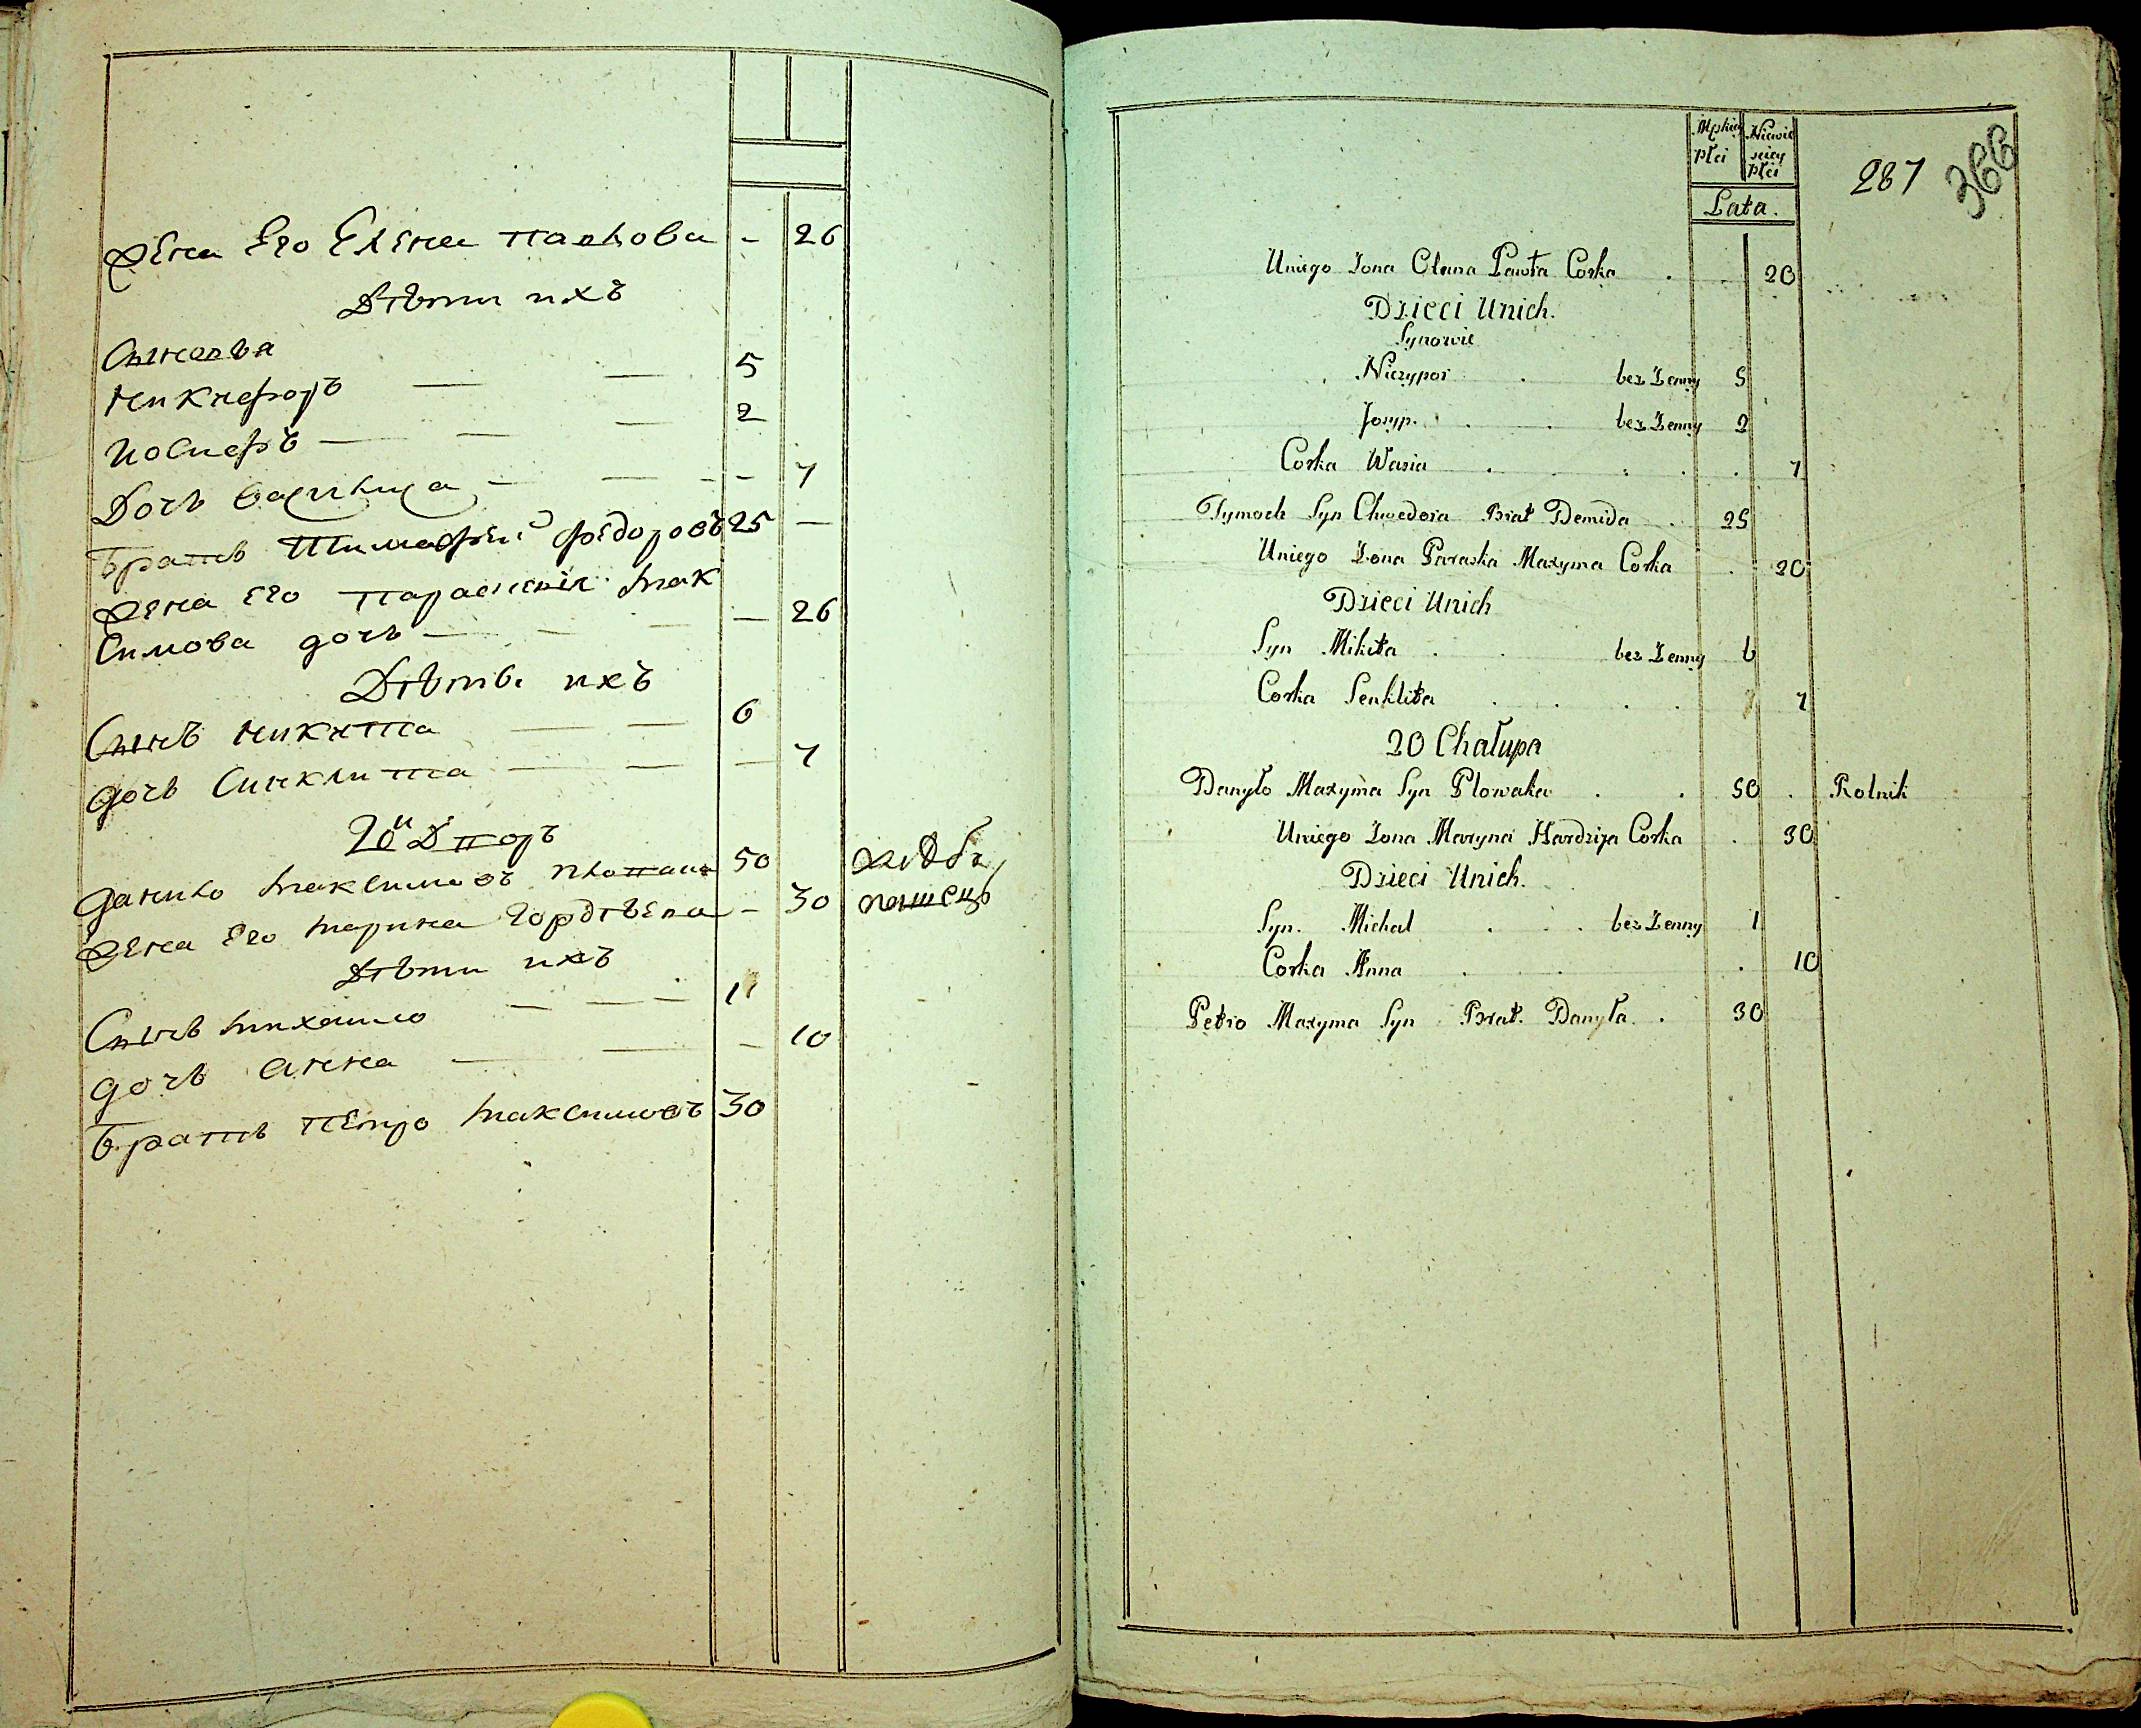 Жена Его Елена павлова - 26
Дѣти ихъ
Сыновья
никифоръ — — 5
иосифъ — — — 2
Дочь василиса — — - - 1
братъ Тимофей федоровъ 25 —
жена его параскевiя мак
симова дочь — — — — 26
Дѣти ихъ
Сынъ никита — — 6
дочь Синклита — — — 1
20й Дворъ
данило максимовъ 50 хлѣбо
жена Его марина Гордѣева - 30 пашецъ
Дѣти ихъ
Сынъ михайло — — — 1
дочь анна — — - 10
братъ петро максимовъ 30
Męskiey płci
Niewieściey płci
Lata.
287
366
Uniego Żona Olena Pawła Corka . . 20
Dzieci Unich.
Synowie
Niczypor . bez Żenny 5
Josyp. . . bez Żenny 2
Corka Wasia . . . . . 1
Tymoch Syn Chwedora Brat Demida . 25
Uniego Żona Paraska Maxyma Corka . 20
Dzieci Unich
Syn Mikita . . bez Żenny 6
Corka Senklita . . . . 1
20 Chałupa
Danyło Maxyma Syn Plowaka . . 50 . Rolnik
Uniego Żona Maryna Hardzija Corka . 30
Dzieci Unich.
Syn. Michał . . bez Żenny 1
Corka Anna . . . 10
Petro Maxyma Syn Brat. Danyła . 30